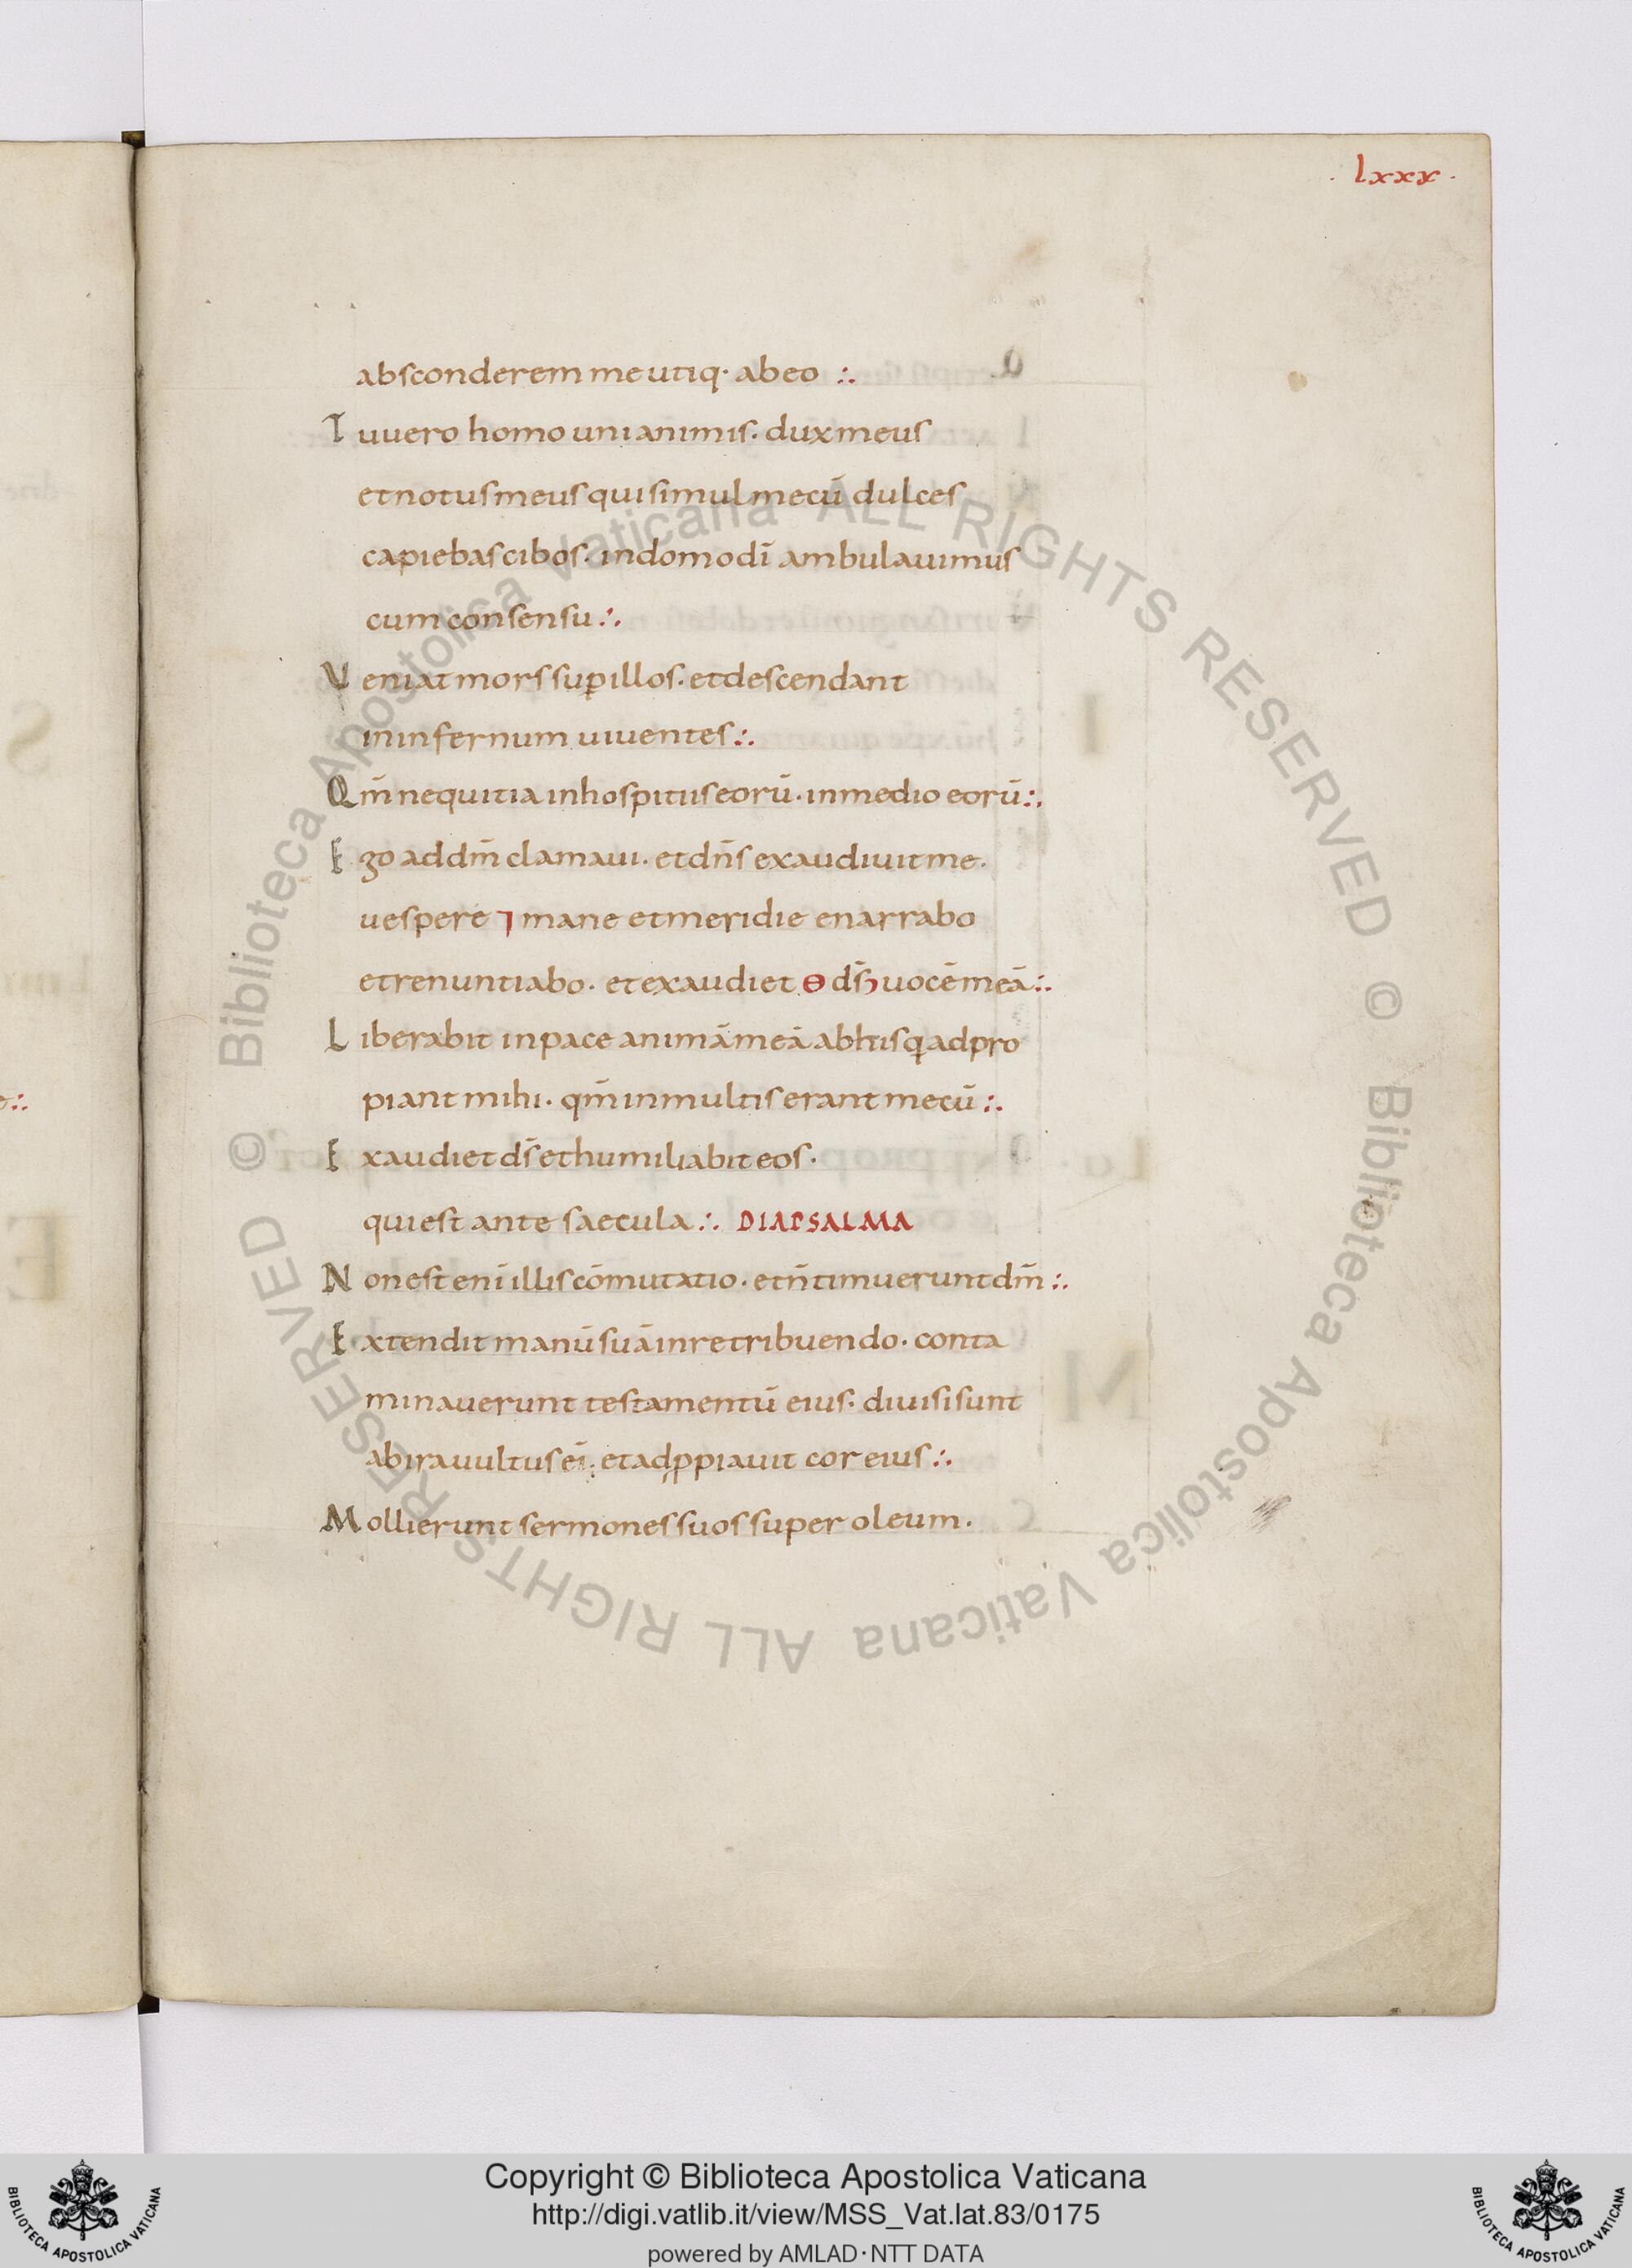 · lxxx ·
absconderem me utiq· ab eo :.
Tu uero homo unianimis· dux meus
et notus meus qui simul mecū dulces
capiebas cibos· in domo dī ambulauimus
cum consensu :.
Ueniat mors sup illos· et descendant
in infernum uiuentes :.
Qm̄ nequitia in hospitiis eorū· in medio eorū :.
Ego ad dm̄ clamaui· et dn̄s exaudiuit me·
uespere ⁊ mane et meridie enarrabo
et renuntiabo· et exaudiet ɵ ds̄ uocē meā :.
Liberabit in pace animā meā ab his q adpro
piant mihi· qm̄ in multis erant mecū :.
Exaudiet ds̄ et humiliabit eos·
qui est ante saecula :. DIAPSALMA
Non est enī illis cōmutatio· et n̄ timuerunt dm̄ :.
Extendit manū suā in retribuendo· conta
minauerunt testamentū eius· diuisi sunt
ab ira uultus eī· et adppiauit cor eius :.
Mollierunt sermones suos super oleum·
© Biblioteca Apostolica Vaticana ALL RIGHTS RESERVED
© Biblioteca Apostolica Vaticana ALL RIGHTS RESERVED
Copyright © Biblioteca Apostolica Vaticana
http://digi.vatlib.it/view/MSS_Vat.lat.83/0175
powered by AMLAD·NTT DATA
BIBLIOTECA APOSTOLICA VATICANA
BIBLIOTECA APOSTOLICA VATICANA